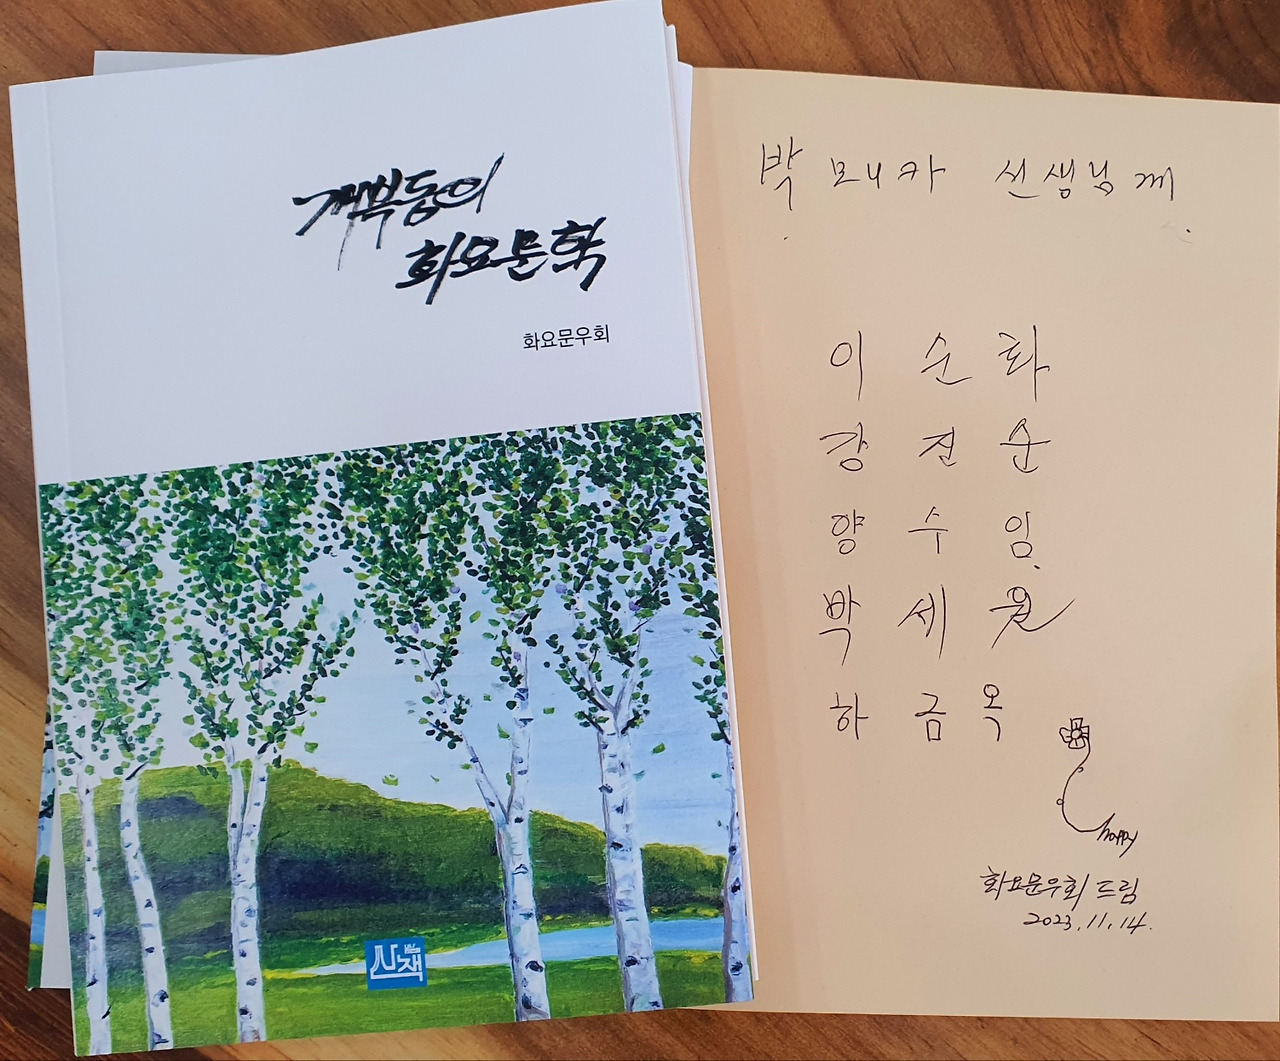 개복동의
화요문학
화요문우회
산책
박 모니카 선생님께.
이 순 화
강 전 순
양 수 임
박 세 원
하 금 옥
happy
화요문우회 드림
2023.11.14.